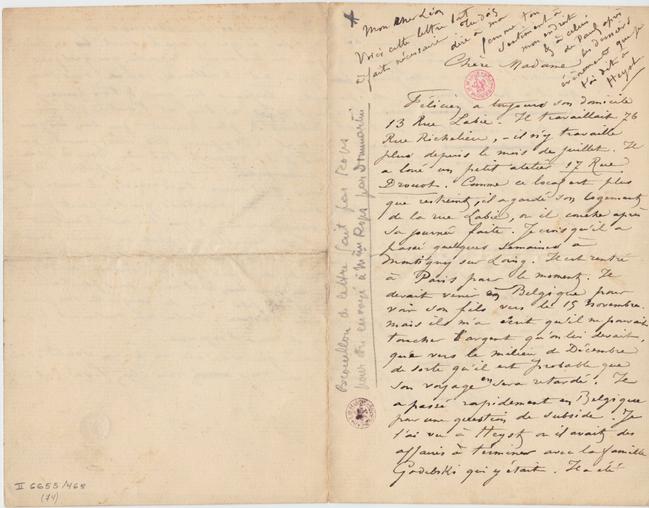 Mon cher Léon
Voici cette lettre
faite nécessaire tu dois
dire à ma
femme ton
sentiment à
mon endroit
& à celui
de Paul après
les derniers
événements que je
t'ai dit à
Heyst
Chère Madame
Félicien a toujours son domicile
13 Rue Labie. Il travaillait 76
Rue Richelieu, – il n'y travaille
plus depuis le mois de juillet. Il
a loué un petit atelier 17 Rue
Drouot. Comme ce local est plus
que restreint, il a gardé son logement
de la rue Labie, où il couche après
sa journée faite. Je crois qu'il a
passé quelques semaines à
Montigny sur Loing. Il est rentré
à Paris pour le moment. Il
devait venir en Belgique pour
voir son fils vers le 15 novembre
mais il m'a écrit qu'il ne pouvait
toucher l'argent qu'on lui devait,
que vers le milieu de Décembre
de sorte qu'il est probable que
son voyage en sera retardé. Il
a passé rapidement en Belgique
pour une question de subside. Je
l'ai vu à Heyst où il avait des
affaires à terminer avec la famille
Godebski qui y était. Il a été
Brouillon de lettre fait par Rops
pour être envoyé à Mme Rops par Dommartin
II 6655/468
(74)